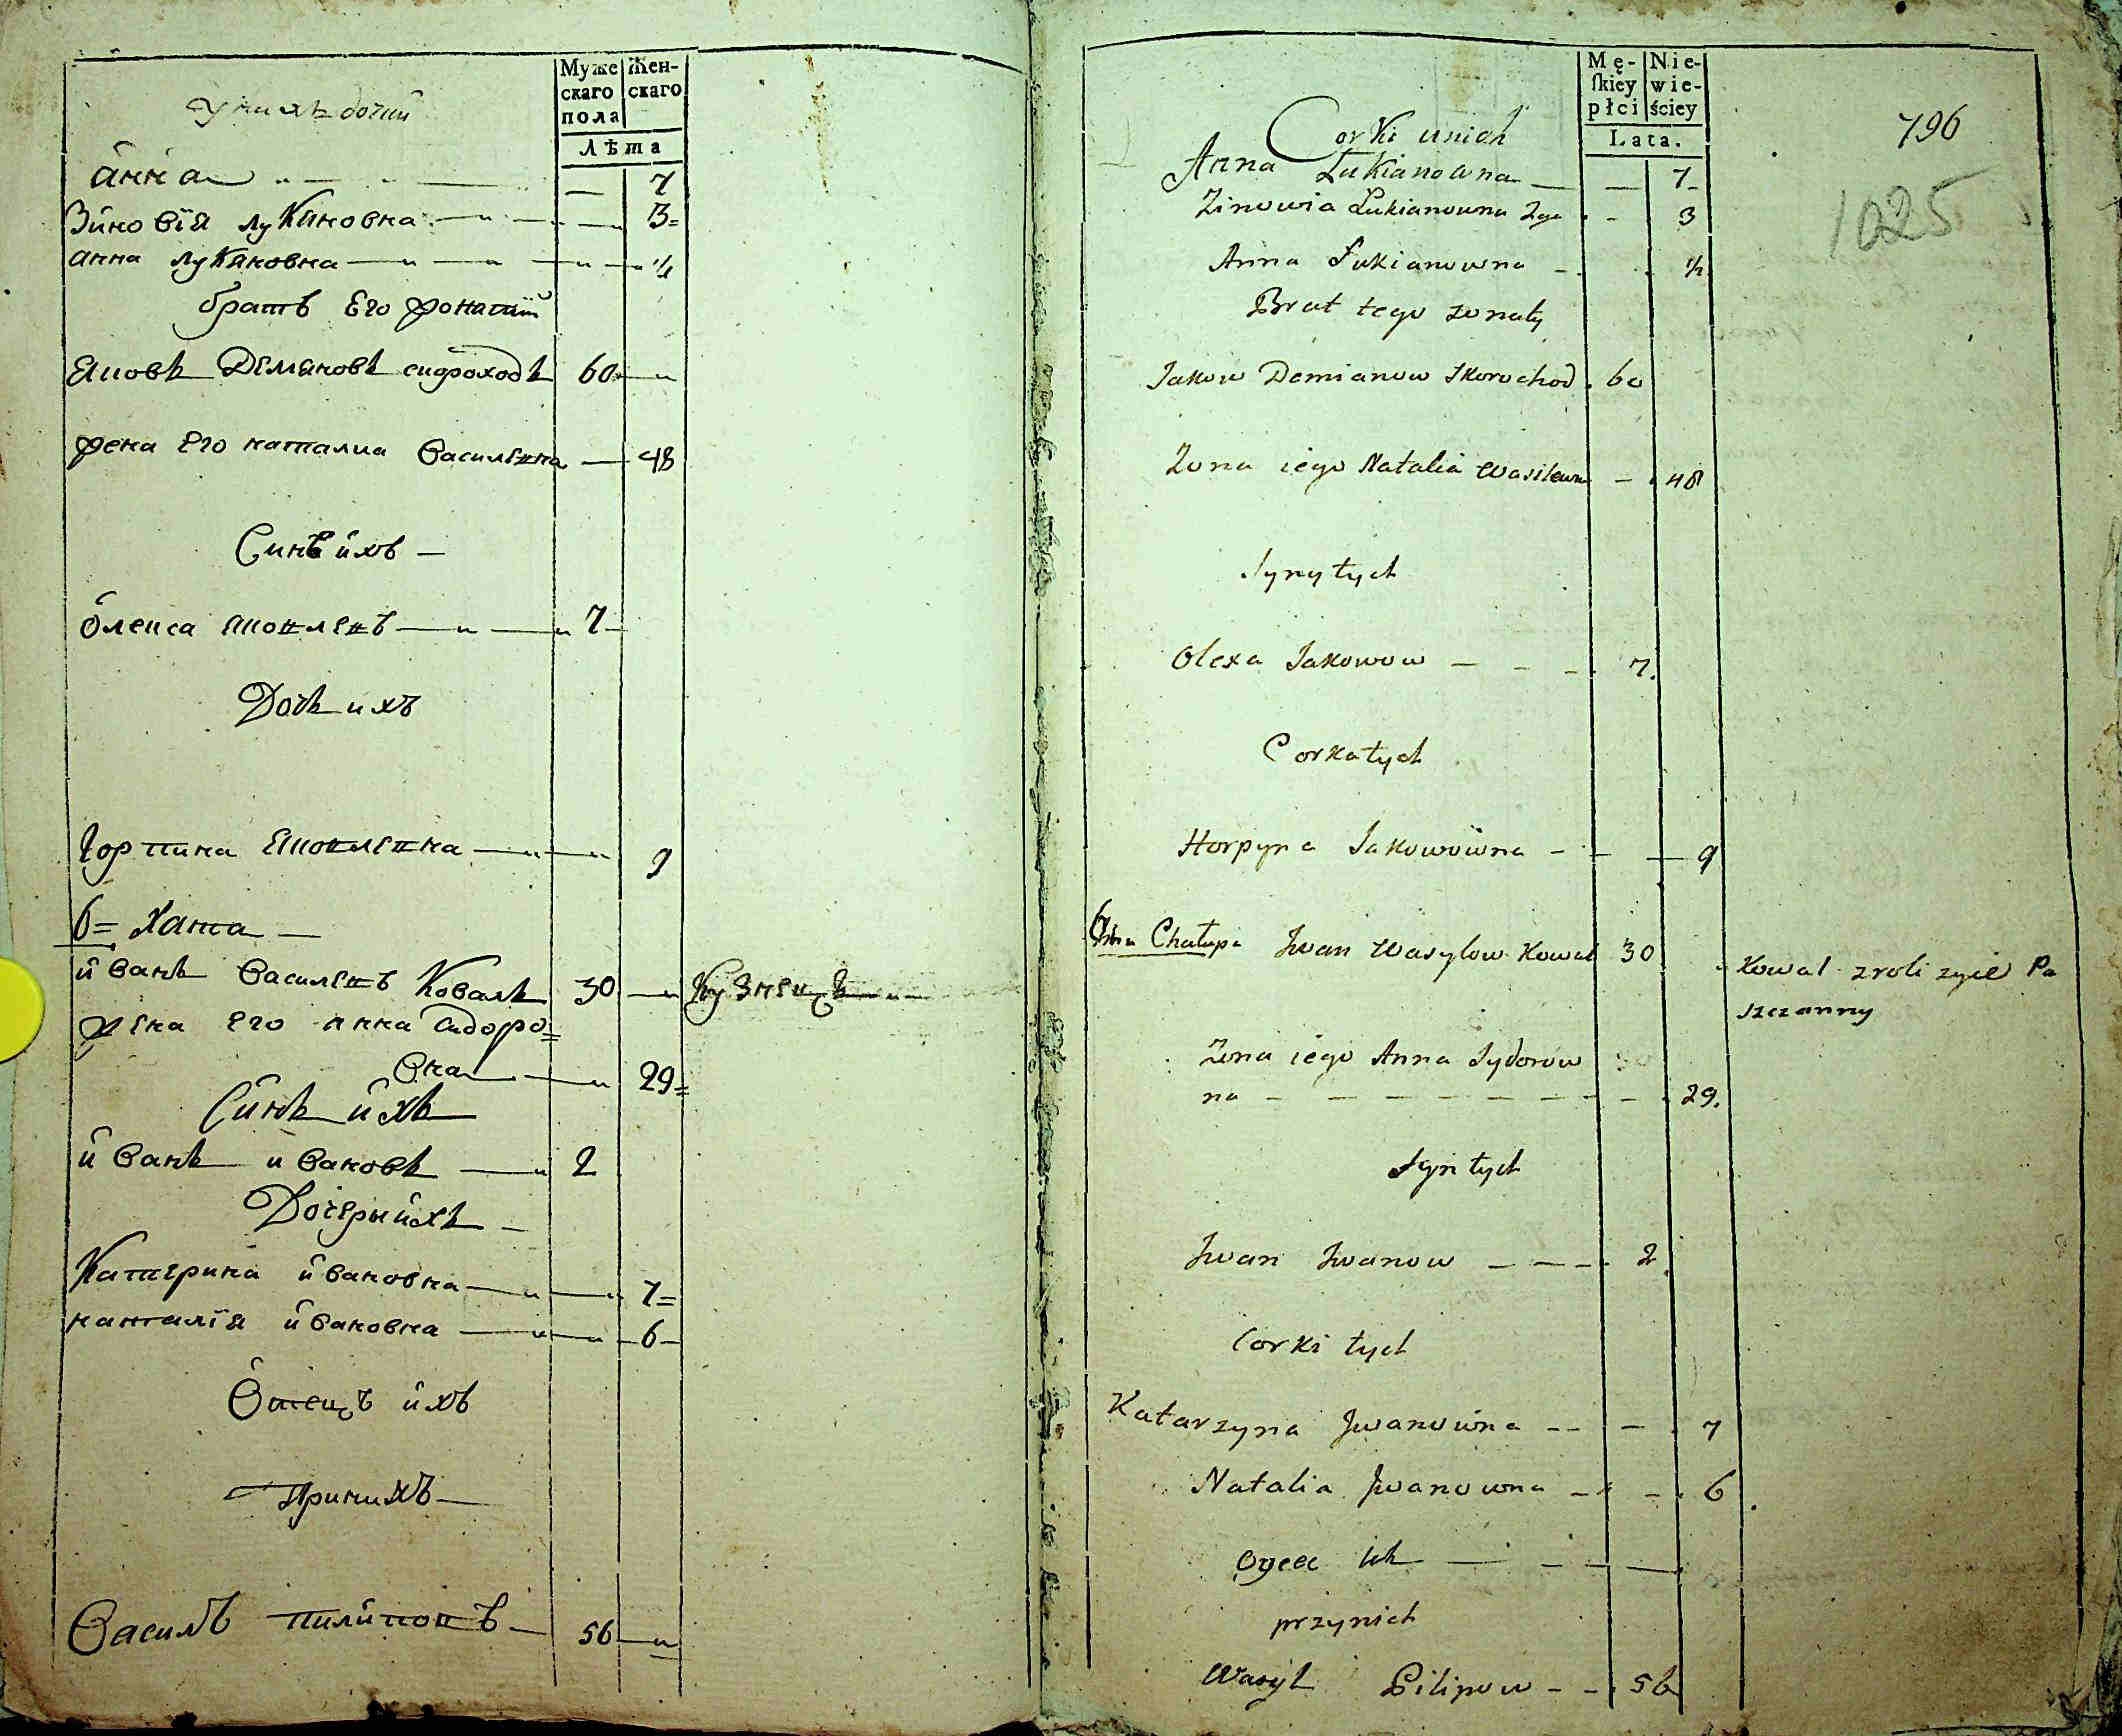 Муже Жен-
скаго скаго
пола
Лѣта
У нихъ дочки
анна 7
Зиновія лукяновна 3
анна лукяновна ½
братъ Его жонатий
Яковъ Демяновъ скороходъ 60
жена Его наталиа василевна 48
Синъ ихъ
Олекса Яковлевъ 7
Дочь ихъ
Горпина Яковлевна 9
6= Хата
иванъ василевъ Коваль 30 Кузнецъ
жена Его анна сидоро=
вна 29=
Синъ ихъ
иванъ ивановъ 2
Дочеры ихъ
Катерина ивановна 7=
наталія ивановна 6
Отецъ ихъ
При нихъ
Василъ пилиповъ 56
Mę- Nie-
skiey wie-
płci ściey
Lata.
796
1025
Corki unich
Anna Łukianowna 7
Zinowia Łukianowna 2ga 3
Anna Łukianowna ½
Brat tego zonaty
Jakow Demianow Skorochod 60
Zona iego Natalia Wasilewna 48
Syny tych
Olexa Jakowow 7.
Corka tych
Horpyna Jakowowna 9
6ta Chałupa Iwan Wasylow Kowal 30
Kowal z roli zyie Pa
szczanny
Zona iego Anna Sydorow
na 29.
Syn tych
Iwan Iwanow 2.
Corki tych
Katarzyna Iwanowna 7
Natalia Iwanowna 6
Oyciec Ich
przynich
Wasyl Pilipow 56